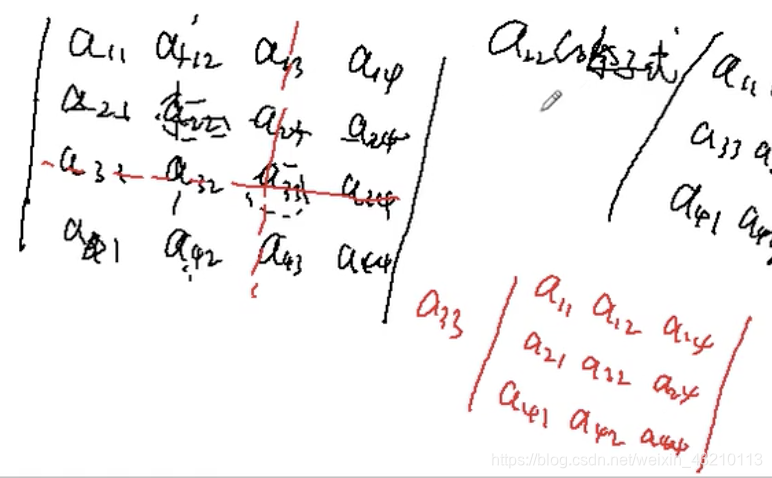 a11 a12 a13 a14
a21 a22 a23 a24
a31 a32 a33 a34
a41 a42 a43 a44
a22的余子式
a11
a33
a41
a33
a11 a12 a14
a21 a22 a24
a41 a42 a44
https://blog.csdn.net/weixin_46210113